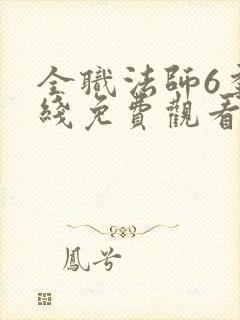 全職法師6季
綫免費觀看
鳳兮